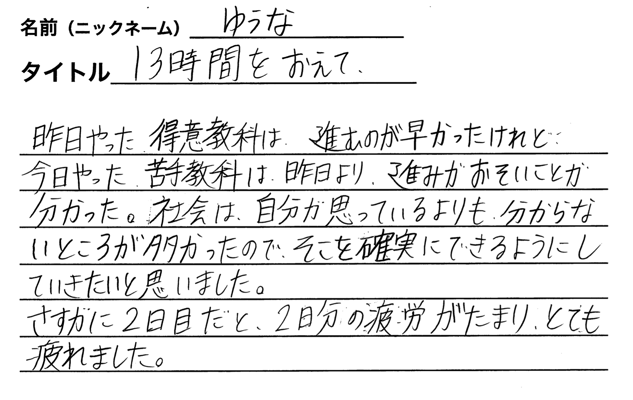 名前（ニックネーム） ゆうな
タイトル 13時間をおえて、
昨日やった得意教科は、進むのが早かったけれど
今日やった苦手教科は、昨日より、進みがおそいことが
分かった。社会は、自分が思っているよりも、分からな
いところが多かったので、そこを確実にできるようにし
ていきたいと思いました。
さすがに2日目だと、2日分の疲労がたまり、とても
疲れました。